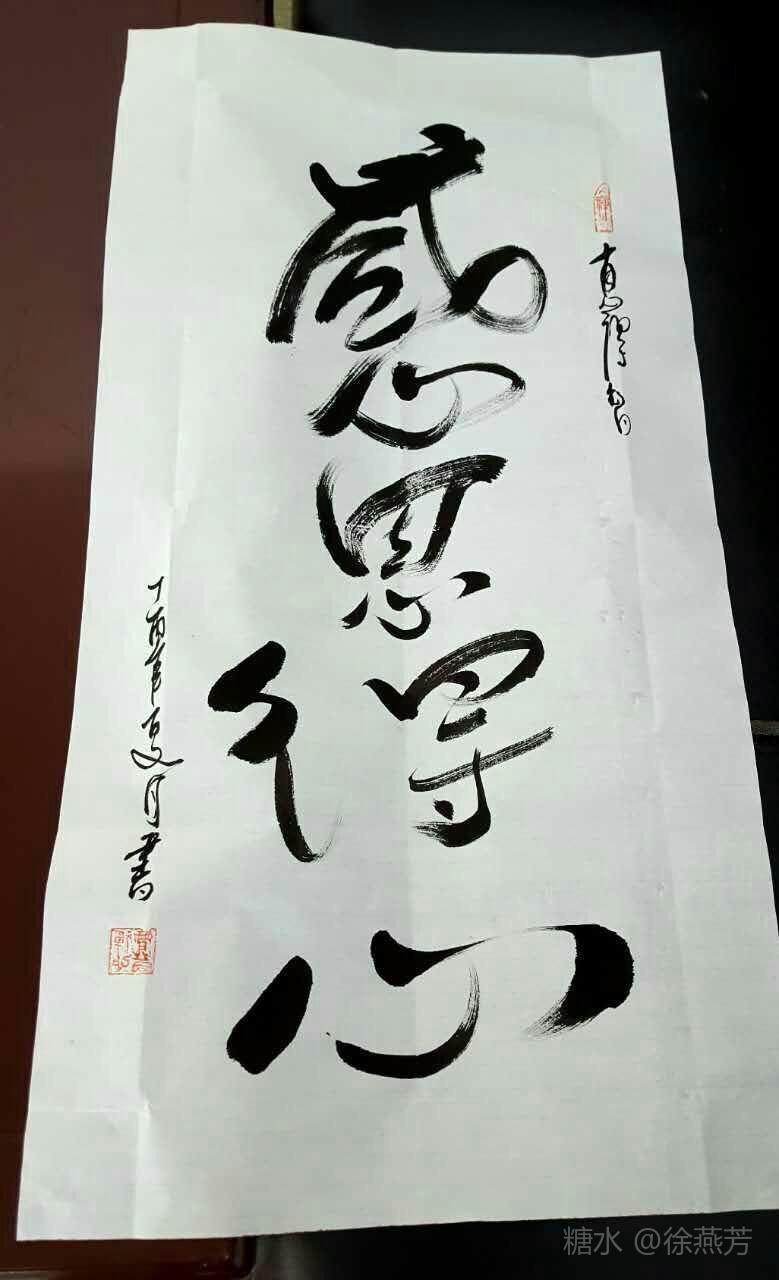 感恩得心
丁酉年夏月書
糖水 @徐燕芳